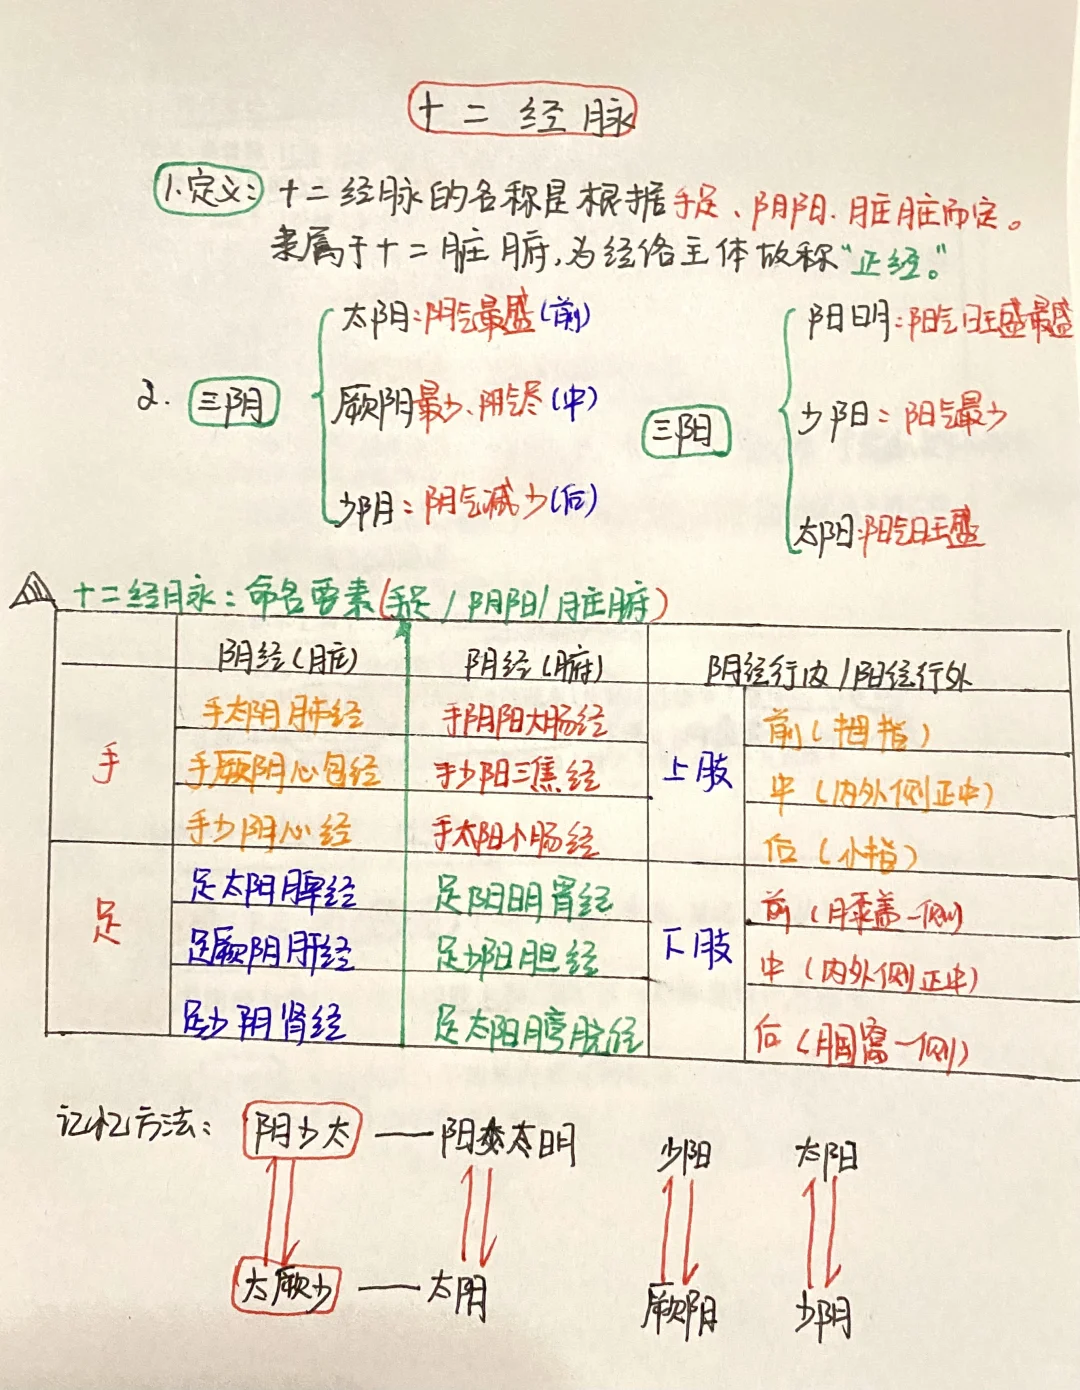 十二经脉
1.定义：十二经脉的名称是根据手足、阴阳、脏脏而定。
隶属于十二脏腑,为经络主体故称“正经。”
太阴:阴气最盛(前)
2. 三阴 厥阴最少、阴气尽(中)
少阴:阴气减少(后)
阳明:阳气旺盛最盛
三阳 少阳:阳气最少
太阳:阳气旺盛
十二经脉:命名要素(手足/阴阳/脏腑)
阴经(脏) 阴经(腑) 阴经行内/阳经行外
手 手太阴肺经 手阴阳大肠经 上肢 前(拇指)
手厥阴心包经 手少阳三焦经 中(内外侧正中)
手少阴心经 手太阳小肠经 后(小指)
足 足太阴脾经 足阳明胃经 下肢 前(膝盖一侧)
足厥阴肝经 足少阳胆经 中(内外侧正中)
足少阴肾经 足太阳膀胱经 后(腘窝一侧)
记忆方法: 阴少太 — 阳太明 少阳 太阳
太厥少 — 太阴 厥阴 少阴